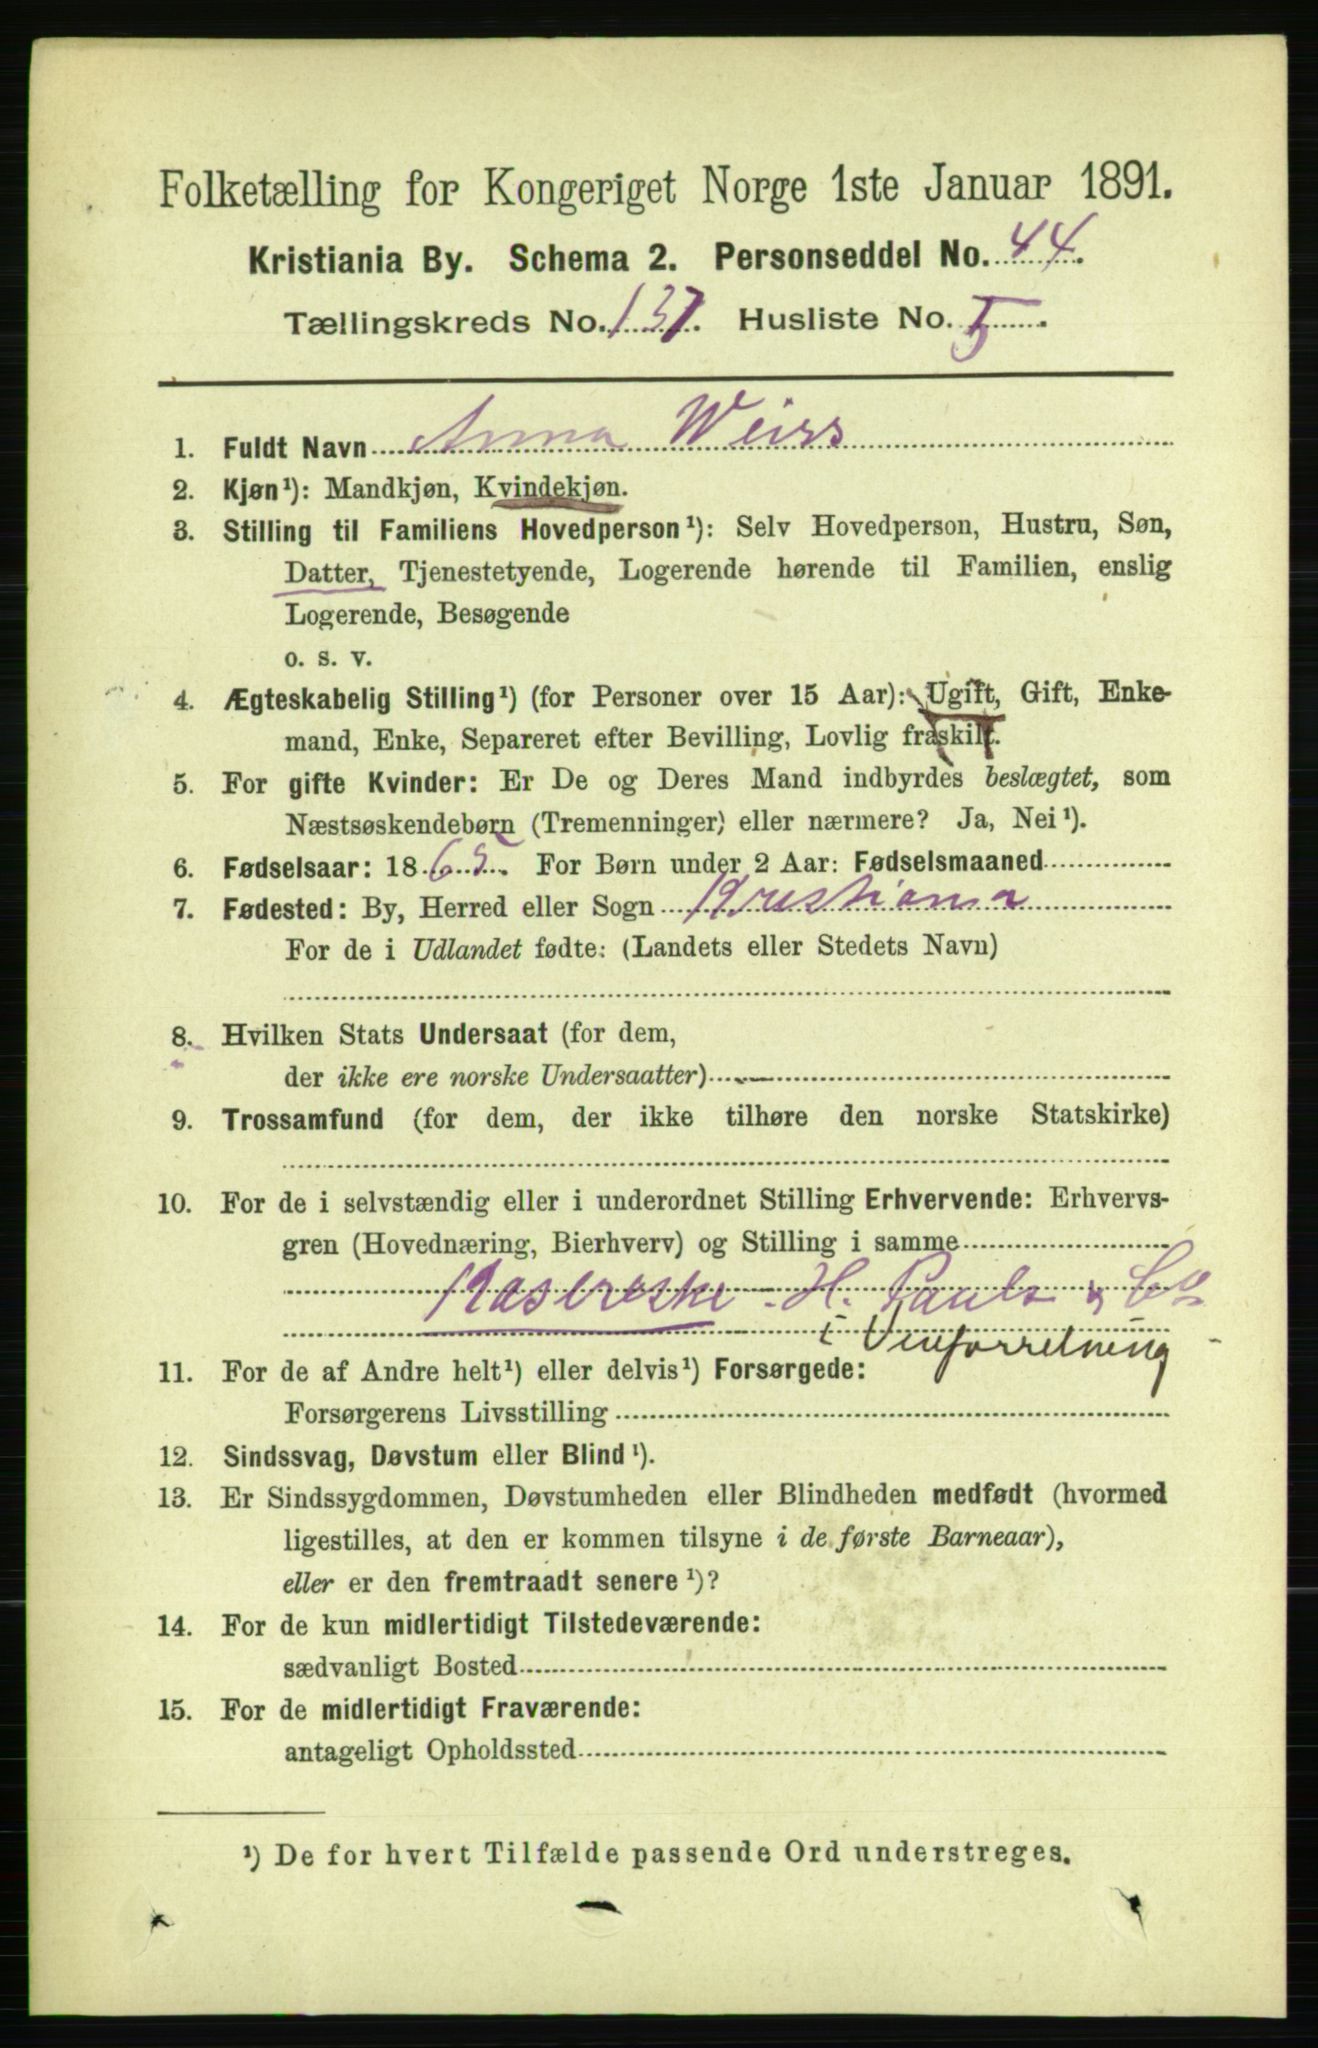 Folketælling for Kongeriget Norge 1ste Januar 1891.
Kristiania By. Schema 2. Personseddel No. 44.
Tællingskreds No. 137. Husliste No. 5.
1. Fuldt Navn Anna Weiss
2. Kjøn¹): Mandkjøn, Kvindekjøn.
3. Stilling til Familiens Hovedperson¹): Selv Hovedperson, Hustru, Søn,
Datter, Tjenestetyende, Logerende hørende til Familien, enslig
Logerende, Besøgende
o. s. v.
4. Ægteskabelig Stilling¹) (for Personer over 15 Aar): Ugift, Gift, Enke-
mand, Enke, Separeret efter Bevilling, Lovlig fraskilt.
5. For gifte Kvinder: Er De og Deres Mand indbyrdes beslægtet, som
Næstsøskendebørn (Tremenninger) eller nærmere? Ja, Nei¹).
6. Fødselsaar: 1865. For Børn under 2 Aar: Fødselsmaaned
7. Fødested: By, Herred eller Sogn Kristiania
For de i Udlandet fødte: (Landets eller Stedets Navn)
8. Hvilken Stats Undersaat (for dem,
der ikke ere norske Undersaatter)
9. Trossamfund (for dem, der ikke tilhøre den norske Statskirke)
10. For de i selvstændig eller i underordnet Stilling Erhvervende: Erhvervs-
gren (Hovednæring, Bierhverv) og Stilling i samme
Kasererske H. Pauls & Co
i Vinforretning
11. For de af Andre helt¹) eller delvis¹) Forsørgede:
Forsørgerens Livsstilling
12. Sindssvag, Døvstum eller Blind¹).
13. Er Sindssygdommen, Døvstumheden eller Blindheden medfødt (hvormed
ligestilles, at den er kommen tilsyne i de første Barneaar),
eller er den fremtraadt senere¹)?
14. For de kun midlertidigt Tilstedeværende:
sædvanligt Bosted
15. For de midlertidigt Fraværende:
antageligt Opholdssted
¹) De for hvert Tilfælde passende Ord understreges.